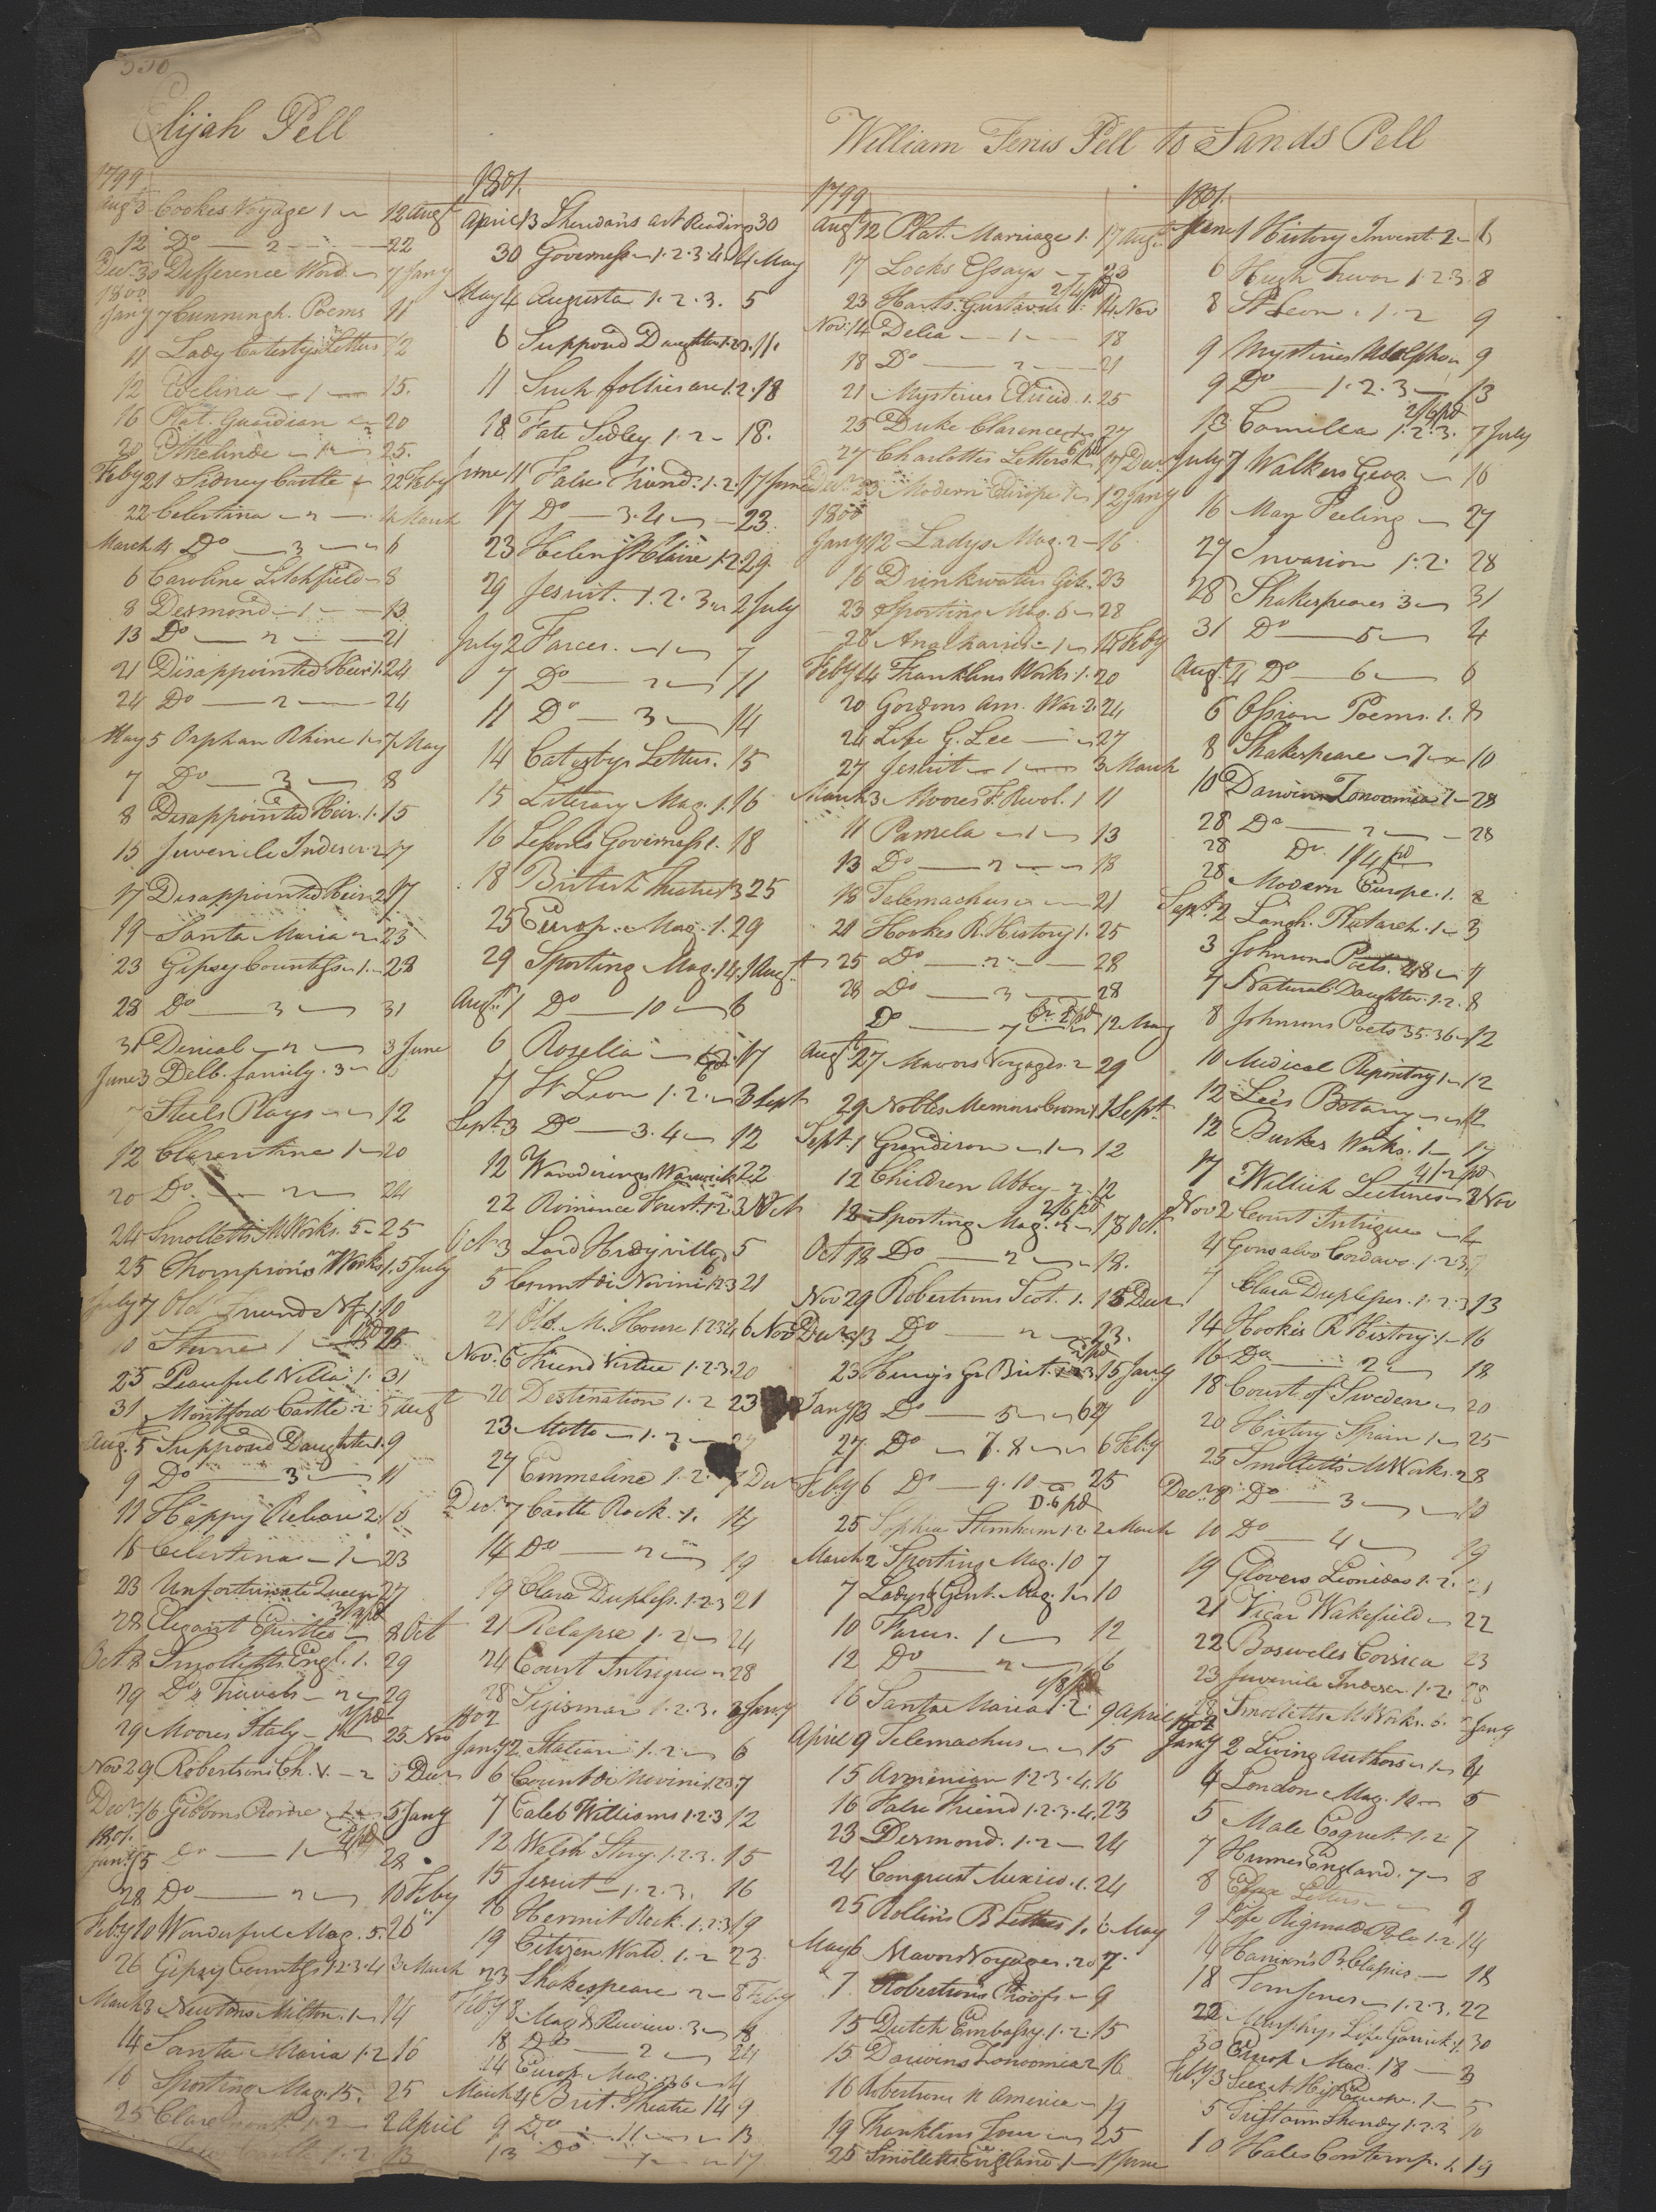 330
Elijah Pell
1799
Augt 3 Cookes Voyage 1 12 Augt
12 Do 2 22
Decr 30 Difference Word. 7 Jany
1800
Jany 7 Cunningh. Poems 11
11 Lady Catesbys Letters 12
12 Evelina 1 15.
16 Plat. Guardian 20
20 Ethelinde 1 25.
Feby 21 Sidney Castle 22 Feby
22 Celestina 2 4 March
March 4 Do 3 6
6 Caroline Litchfield 8
8 Desmond 1 13
13 Do 2 21
21 Disappointed Heir 1. 24
24 Do 2 24
May 5 Orphan Rhine 1 7 May
7 Do 3 8
8 Disappointed Heir. 1. 15
15 Juvenile Indiscr. 2 17
17 Disappointed Heir 2 17
19 Santa Maria 2 23
23 Gipsey Countess 1. 28
28 Do 3 31
31 Denial 2 3 June
June 3 Delb. family. 3
7 Steels Plays 12
12 Clarentine 1 20
20 Do. 2 24
24 Smolletts M Works. 5 25
25 Thompson's Works 1. 5 July
July 7 Old Friends 10
10 Sterne 1 25
25 Peaceful Villa 1. 31
31 Montford Castle 2 5 Augt
Aug. 5 Supposed Daughter 1. 9
9 Do 3 11
11 Happy Release 2. 16
16 Celestina 1 23
23 Unfortunate Queen 27
28 Elegant Epistles 8 Oct
Oct 8 Smolletts Engl. 1. 29
29 Do Travels 2 29
29 Moores Italy 1 25 Nov
Nov 29 Robertsons Ch. V. 2 5 Decr
Decr 16 Gibbons Rome 1 5 Jany
1801.
Jany 15 Do 1 28
28 Do 2 10 Feby
Feby 10 Wonderful Mag. 5. 26
26 Gipsey Countess 1.2.3.4 3 March
March 3 Newtons Milton. 1 14
14 Santa Maria 1.2 16
16 Sporting Mag. 15. 25
25 Claremont 1.2 2 April
1801.
April 13 Sheridans Art Reading 30
30 Governess 1.2.3.4 4 May
May 4 Augusta 1.2.3. 5
6 Supposed Daughter 1.2.3. 11.
11 Such follies are 1.2. 18
18 Fate Sedley 1.2 18.
June 11 False Friend. 1.2. 17 June
17 Do 3.4 23.
23 Helen St Claire 1.2. 29.
29 Jesuit. 1.2.3. 2 July
July 2 Farces. 1 7
7 Do 2 11
11 Do 3 14
14 Catesbys Letters. 15
15 Literary Mag. 1. 16
16 Lessons Governess 1. 18
18 British Theatre 13 25
25 Europ. Mag. 1. 29
29 Sporting Mag. 14. 1 Augt
Augt 1 Do 10 6
6 Rosella 1.2. 17
17 St Leon 1.2. 3 Sept
Sept. 3 Do 3.4 12
12 Wanderings Warwick 22
22 Romance Forest. 1.2 3 Oct
Oct. 3 Lord Hrdyville 5
5 Count di Novini 1.2.3 21
21 Old M. House 1.2.3.4 6 Nov
Nov. 6 Friend Virtue 1.2.3. 20
20 Destination 1.2 23
23 Motto 1.2
27 Emmeline 1.2. 7 Decr
Decr 7 Castle Rock. 1. 14
14 Do 2 19
19 Clara Dupless. 1.2.3 21
21 Relapse 1.2 24
24 Court Intrigue 28
28 Sigismar 1.2.3. 2 Jany
1802
Jany 2 Statian 1.2 6
6 Count di Novini 1.2.3. 7
7 Caleb Williams 1.2.3 12
12 Welsh Story. 1.2.3. 15
15 Jesuit 1.2.3. 16
16 Hermit Rock. 1.2.3 19
19 Citizen World. 1.2 23
23 Shakespeare 2 8 Feby
Feby 8 Mag & Review. 3 18
18 Do 2 24
24 Europ. Mag. 36 4
March 4 Brit. Theatre 14 9
9 Do 11 13
13 Do 17
William Feris Pell to Sands Pell
1799
Augt 12 Plat. Marriage 1. 17 Augt
17 Locks Essays 23
23 Harts. Gustavus 1. 2/4 pd 14 Nov
Nov. 14 Delia 1 18
18 Do 2 21
21 Mysteries Elucid. 1. 25
25 Duke Clarence 27
27 Charlottes Letters 17 Decr
Decr 23 Modern Europe 1 12 Jany
1800
Jany 12 Ladys Mag. 2 16
16 Drinkwaters Gib. 23
23 Sporting Mag. 5 28
28 Anacharsis 1 14 Feby
Feby 14 Franklins Works. 1. 20
20 Gordons Am. War. 2. 24
24 Life G. Lee 27
27 Jesuit 1 3 March
March 3 Moores F. Revol. 1 11
11 Pamela 1 13
13 Do 2 18
18 Telemachus 21
21 Hookes R. History 1. 25
25 Do 2 28
28 Do 3 28
Do 12 May
Augt 27 Mavors Voyages. 2 29
29 Nobles Memoirs Crom. 1 1 Sept.
Sept. 1 Grandison 1 12
12 Children Abbey 2 12
12 Sporting Mag. 2/6 pd 18 Oct.
Oct 18 Do 2 18.
Nov 29 Robertsons Scot. 1. 13 Decr
Decr 13 Do 2 23.
23 Henrys Gr Brit. 15 Jany
Jany 13 Do 5 27
27 Do 7.8 6 Feby
Feby 6 Do 9.10 25
25 Sophia Sternheim 1.2 2 March
March 2 Sporting Mag. 10 7
7 Ladys & Gent. Mag. 1 10
10 Farces. 1 12
12 Do 2 16
16 Santa Maria 1.2. 9 April
April 9 Telemachus 15
15 Armenian 1.2.3.4. 16
16 False Friend 1.2.3.4. 23
23 Desmond. 1.2 24
24 Conquest Mexico. 1. 24
25 Rollins B Lettres 1. 6 May
May 6 Mavors Voyages. 20 7.
7. Robertsons Proofs 9
15 Dutch Embassy. 1.2. 15
15 Darwins Zonoomia 2 16
16 Robertsons N America 19
19 Franklins Tour 25
25 Smolletts England 1 1 June
1801.
June 1 History Invent. 2 6
6 Hugh Trevor 1.2.3. 8
8 St Leon. 1.2 9
9 Mysteries Udolpho 9
9 Do 1.2.3 13
13 Camilla 1.2.3. 2/6 pd 7 July
July 7 Walkers Geog. 16
16 Man Feeling 27
27 Invasion 1.2. 28
28 Shakespeares 3 31
31 Do 5 4
Augt. 4 Do 6 6
6 Ossian Poems. 1. 8
8 Shakespeare 7 10
10 Darwin Zonoomia 1 28
28 Do 2 28
28 Do. 1/4 pd
28 Modern Europe. 1. 2
Sept. 2 Langh. Plutarch. 1 3
3 Johnsons Poets. 28 7
7 Natural Daughter. 1.2. 8
8 Johnsons Poets 35.36 12
10 Medical Repository 1 12
12 Lees Botany 12
12 Burkes Works. 1 17
17 Willich Lectures 4/2 pd 2 Nov
Nov 2 Court Intrigue 4
4 Gonsalvo Cordova. 1.2.3. 7
7 Clara Duplesses. 1.2.3 13
14 Hookes R History. 1 16
16 Do 2 18
18 Court of Sweden 20
20 History Spain 1 25
25 Smolletts M Works. 2 8
Decr 8 Do 3 10
10 Do 4 19
19 Glovers Leonidas 1.2. 21
21 Vicar Wakefield 22
22 Boswells Corsica 23
23 Juvenile Indiscr. 1.2. 28
28 Smolletts M Works. 5. 2 Jany
1802
Jany 2 Living Authors 1 4
4 London Mag. 10 5
5 Male Coquet. 1.2 7
7 Humes England. 7 8
8 Essex Letters 9
9 Life Riginald 1.2 14
14 Harrison's B. Classics 18
18 Tom Jones 1.2.3. 22
22 Murphys Life Garrick. 1. 30
30 Europ Mag. 18 3
Feby 3 Secret Hist Europe. 1 5
5 Tristram Shandy 1.2.3 10
10 Hales Contemp. 1. 19